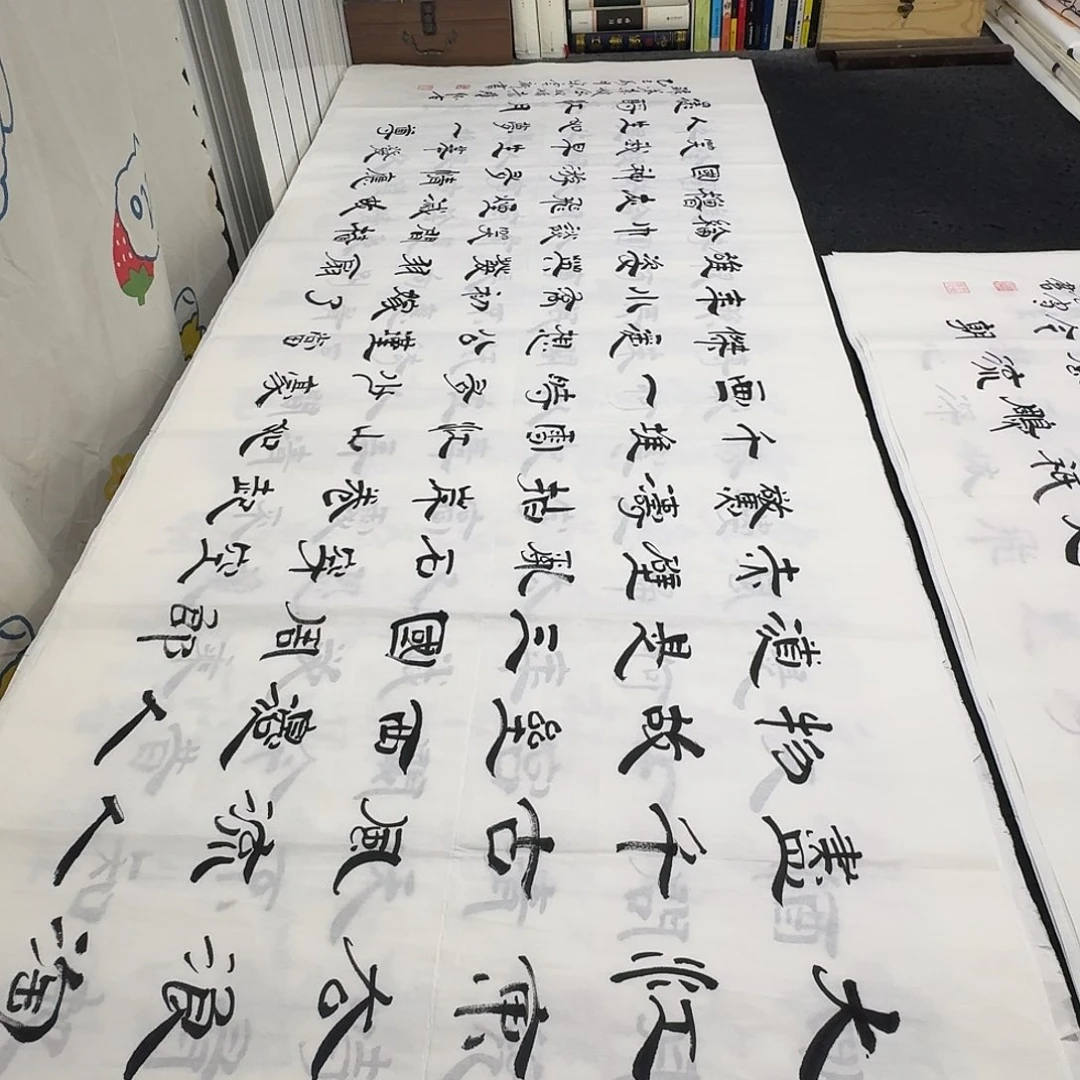 大江東去浪淘
盡千古風流人
物故壘西邊人
道是三國周郎
赤壁亂石穿空
驚濤拍岸卷起
千堆雪江山如
畫一時多少豪
傑遙想公瑾當
年小喬初嫁了
雄姿英發羽扇
綸巾談笑間檣
櫓灰飛煙滅故
國神遊多情應
笑我早生華髮
人生如夢一尊
還酹江月